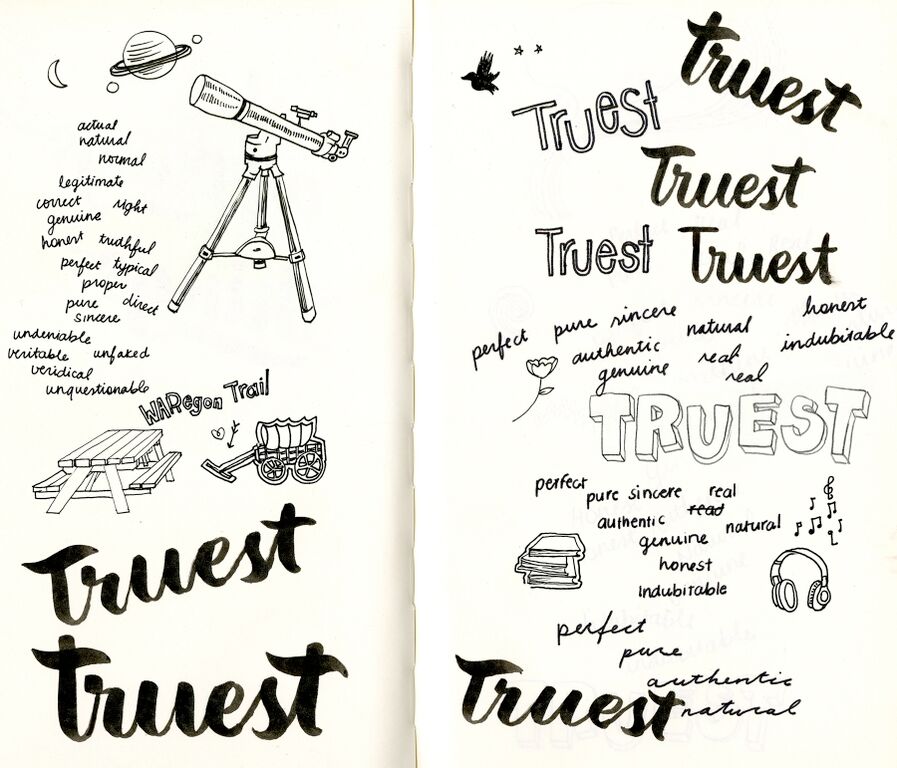 actual
natural
normal
legitimate
correct right
genuine
honest truthful
perfect typical
proper
pure direct
sincere
undeniable
veritable unfaked
veridical
unquestionable
WARegon Trail
Truest
Truest
Truest
Truest
Truest
Truest Truest
perfect pure sincere natural honest
authentic real indubitable
genuine real
TRUEST
perfect
pure sincere real
authentic read natural
genuine
honest
Indubitable
perfect
pure
authentic
Truest natural